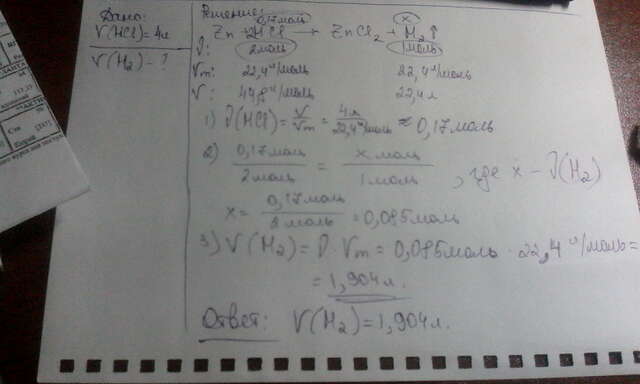 Дано:
V(HCl) = 4л
V(H2) - ?
Решение:
0,17моль x
Zn + 2HCl → ZnCl2 + H2↑
ν: 2моль 1моль
Vm: 22,4л/моль 22,4л/моль
V: 44,8л/моль 22,4л
1) ν(HCl) = V/Vm = 4л/22,4л/моль ≈ 0,17моль
2) 0,17моль/2моль = x моль/1моль , где x - ν(H2)
x = 0,17моль/2моль = 0,085моль
3) V(H2) = ν · Vm = 0,085моль · 22,4л/моль =
= 1,904л.
Ответ: V(H2) = 1,904л.